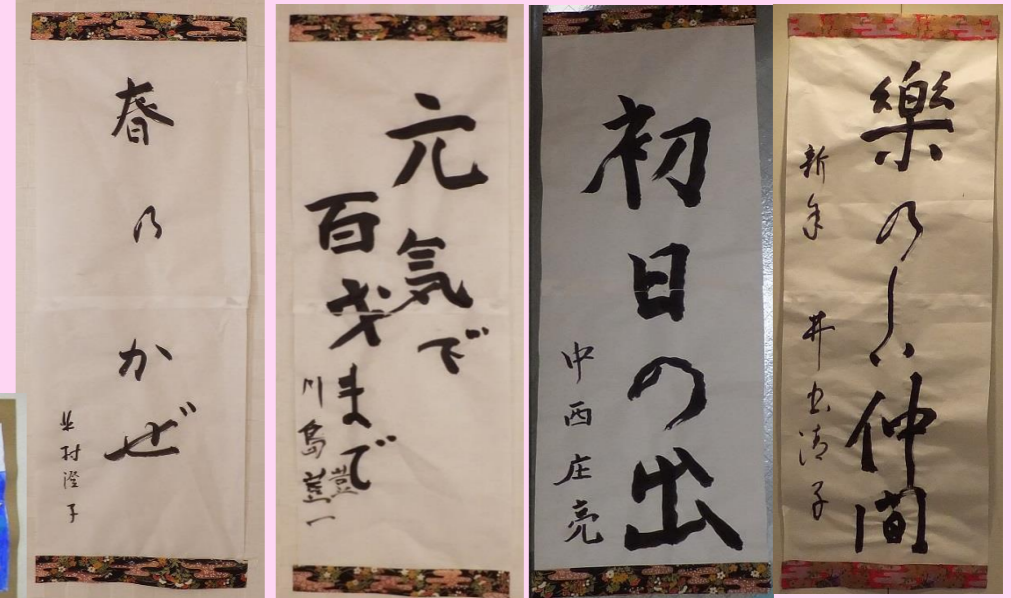 春乃かぜ
村澄子
元気で
百才まで
川島
初日の出
中西庄亮
樂のしい仲間
新年 井出清子